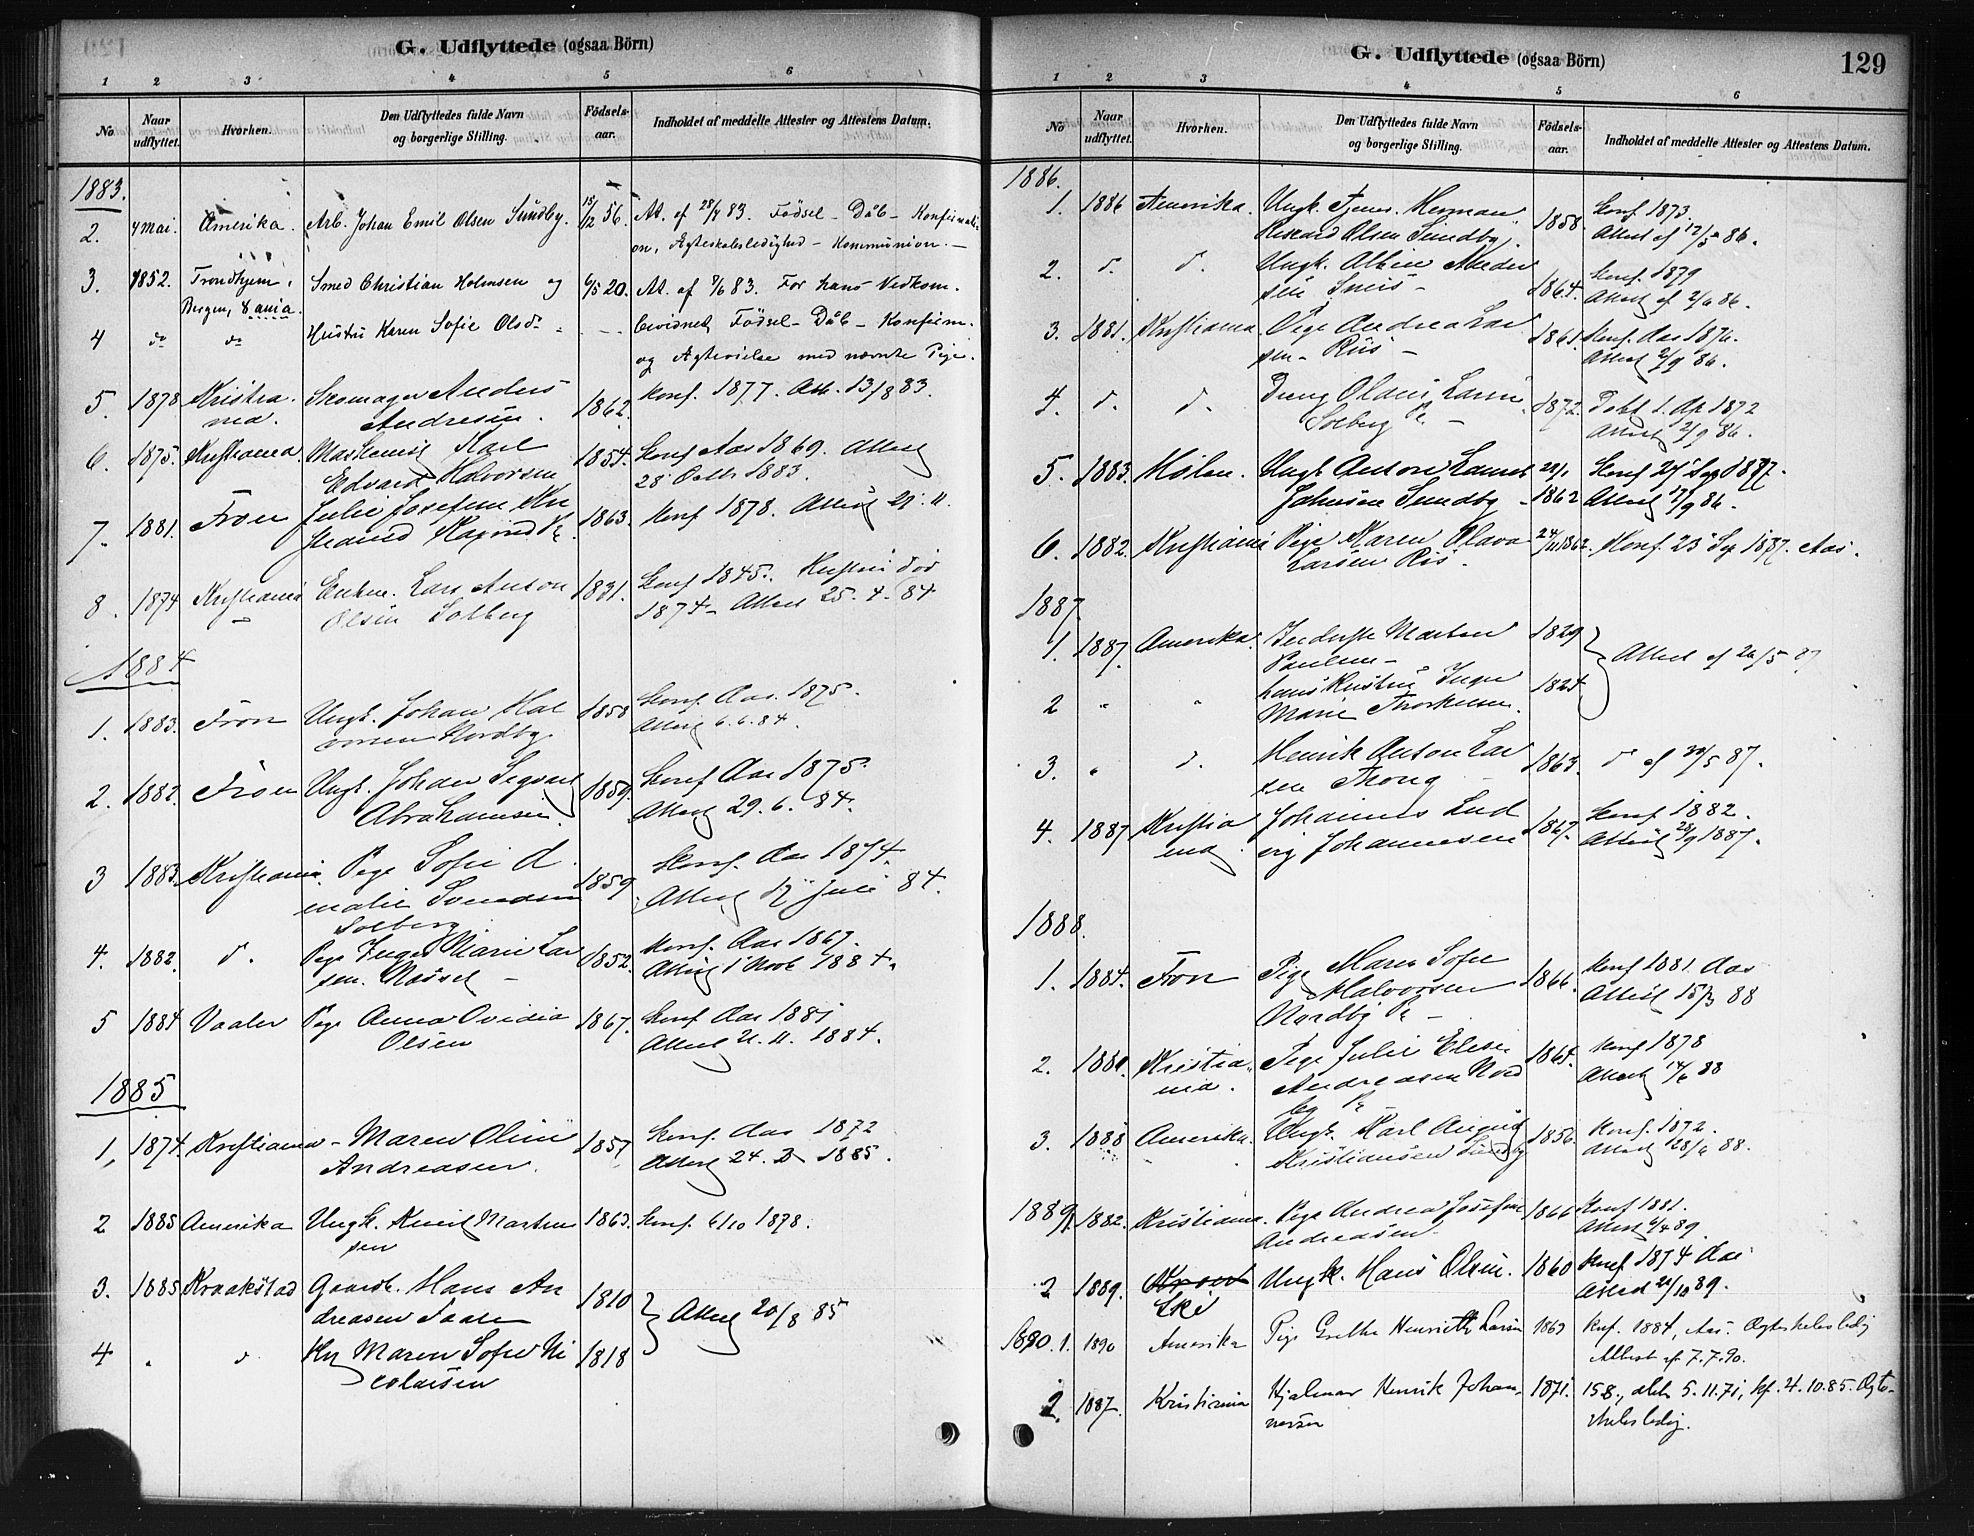 G. Udflyttede (ogsaa Börn)
1 2 3 4 5 6
No Naar udflyttet. Hvorhen. Den Udflyttedes fulde Navn og borgerlige Stilling. Födsels-aar. Indholdet af meddelte Attester og Attestens Datum.
1883.
2. 4 mai. Amerika. Arb. Johan Emil Olsen Sundby. 15/12 56. At. af 28/4 83. Fødsel - Dåb - Konfirmati-
on, Ægteskabsledighed - Kommunion. -
3. 1852. Trondhjem, Smed Christian Holmsen og 6/5 20. At. af 9/6 83. For hans Vedkom.
Bergen, Xania. bevidnet, Fødsel - Dåb - Konfirm.
4 do do Hustru Karen Sofie Olsdr. - og Ægtevielse med nævnte Pige.
5. 1878 Kristia- Skomager Anders 1862. Konf. 1877. Att. 13/8 83.
nia. Andresen.
6. 1875. Kristiania. Karl 1854. Konf. Aas 1869. Attest
Edvard Halvorsen 28 Octb. 1883.
7. 1881. Fron Julie Josefine 1863. Konf. 1878. Attest 29. 11.
8. 1874 Kristiania Enkem. Lars Anton 1831. Konf 1845. Hustru død
Olsen Solberg 1874 - Attest 25. 4. 84
1884
1. 1883. Fron Ungk. Johan Hal 1858 Konf. Aas. 1875.
vorsen Nordby. Attest 6.6.84.
2. 1882. Fron Ungk. Johan Sigvart 1859. Konf Aas 1875.
Abrahamsen. Attest 29. 6. 84.
3 1883. Kristiania. Pige Sofie A 1859 Konf. Aas 1874.
malie Svendsen Attest 12 juli 84.
Solberg
4. 1882. d. Pige Inger Marie Lar 1852. Konf. Aas 1867.
sen. - Attest 1 Novb 1884.
5 1884 Vaaler Pige Anna Ovidia 1867. Konf Aas 1881
Olsen Attest 21. 11. 1884.
1885
1, 1874. Kristiania - Maren Oline 1857 Konf. Aas 1872
Andreasen. Attest 24. 3 1885.
2 1885 Amerika Ungk. Emil Marten 1863. Konf. 6/10 1878.
sen
3. 1885 Kraakstad Gaardb. Hans An 1810 Attest 20/8 85
dreasen
4 " d Hu Maren Sofie Ni 1818
colaisen
G. Udflyttede (ogsaa Börn) 129
1 2 3 4 5 6
No Naar udflyttet. Hvorhen. Den Udflyttedes fulde Navn og borgerlige Stilling. Födsels-aar. Indholdet af meddelte Attester og Attestens Datum.
1886.
1. 1886 Amerika. Ungk. Tjener. Herman 1858. Konf 1873.
Rikard Olsen Sundby. Attest af 12/5 86.
2. d. d. Ungk. Albin Ander 1864. Konf. 1879
sen - Attest af 2/6 86.
3. 1881. Kristiania Pige Andrea Lar 1861. Konf. Aas 1876.
sen - Riis - Attest 2/9 86.
4. d. d. Dreng Olaus Larsen 1872. Døbt 1. Ap 1872
Solberg - Attest 2/9 86.
5. 1883. Hølen. Ungk Anton 28/1 Konf 1877.
Johnsen Sundby - 1862 Attest 17/9 86.
6. 1882. Kristiania Pige Karen Olava 24/11 1862. Konf. 23 Sep 1877. Aas.
Larsen Riis.
1887.
1. 1887. Amerika. Inderste Marten 1829 Attest af 26/5 87
Paulsen -
2 " " hans Hustru Inger 1824
Marie Thorkelsen.
3. " d. Henrik Anton Lar 1863. d af 30/5 87.
sen Thong
4. 1887 Kristia Johannes Lud 1867. Konf 1882.
nia vig Johannesen Attest 28/9 1887.
1888.
1. 1884. Fron Pige Maren Sofie 1866. Konf 1881. Aas
Halvorsen Attest 15/3 88
Nordby -
2. 1881. Kristia- Pige Julie Elise 1864. Konf 1878
nia. Andreasen Nord Attest 14/6 88
by
3. 1888 Amerika. Ungk. Karl August 1856. Konf. 1872.
Kristiansen Sundby Attest 28/6 88.
1889/1. 1882. Kristiania. Pige Andrea Josefine 1866 Konf 1881.
Andreasen. Attest 6/4 89.
2 1889. Ungk. Hans Olsen. 1860 Konf 1874 Aas
Ski Attest 20/10 89.
1890. 1. 1890 Amerika Pige Grethe Henriette Larsen 1869 Knf. 1884, Aas. Ægteskabsledig
Attest af 7.7.90.
2. 1887. Kristiania Hjalmar Henrik Johan- 1871. 15/8., døbt 5.11.71, kf. 4.10.85. Ægte-
nessen skabsledig.